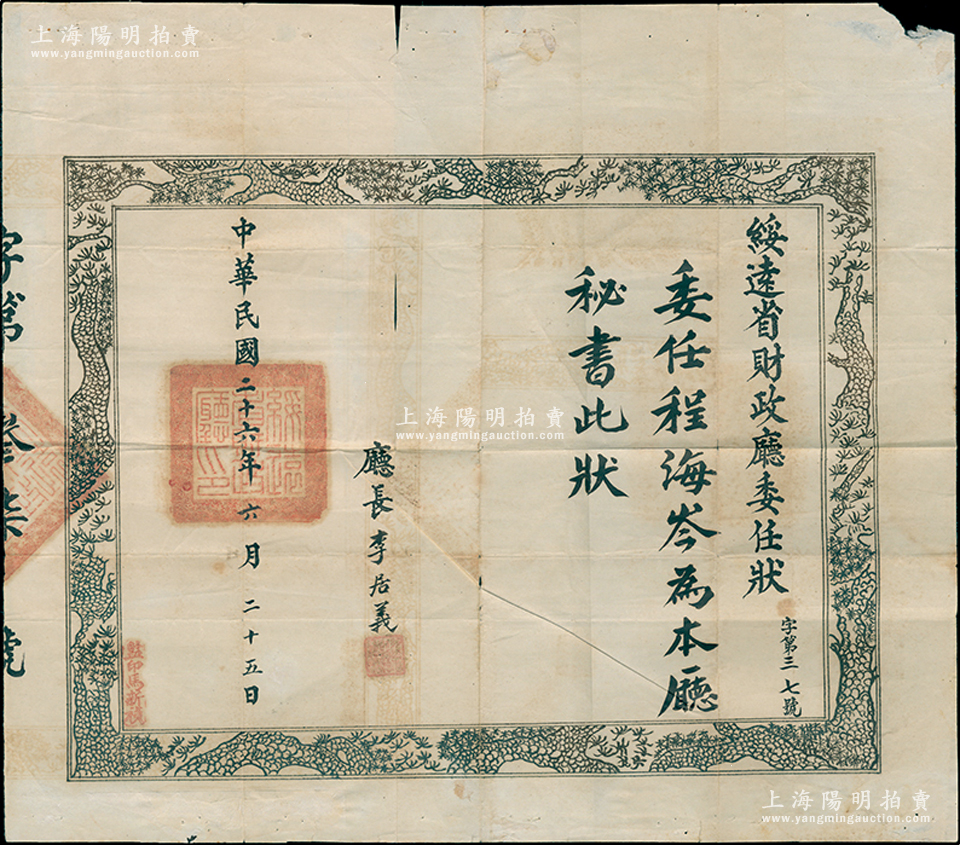 上海陽明拍賣
www.yangmingauction.com
綏遠省財政廳委任狀
字第三七號
委任程海岑為本廳
秘書此狀
廳長李居義
中華民國二十六年六月二十五日
監印馬新槙
字第叄柒號
上海陽明拍賣
www.yangmingauction.com
上海陽明拍賣
www.yangmingauction.com